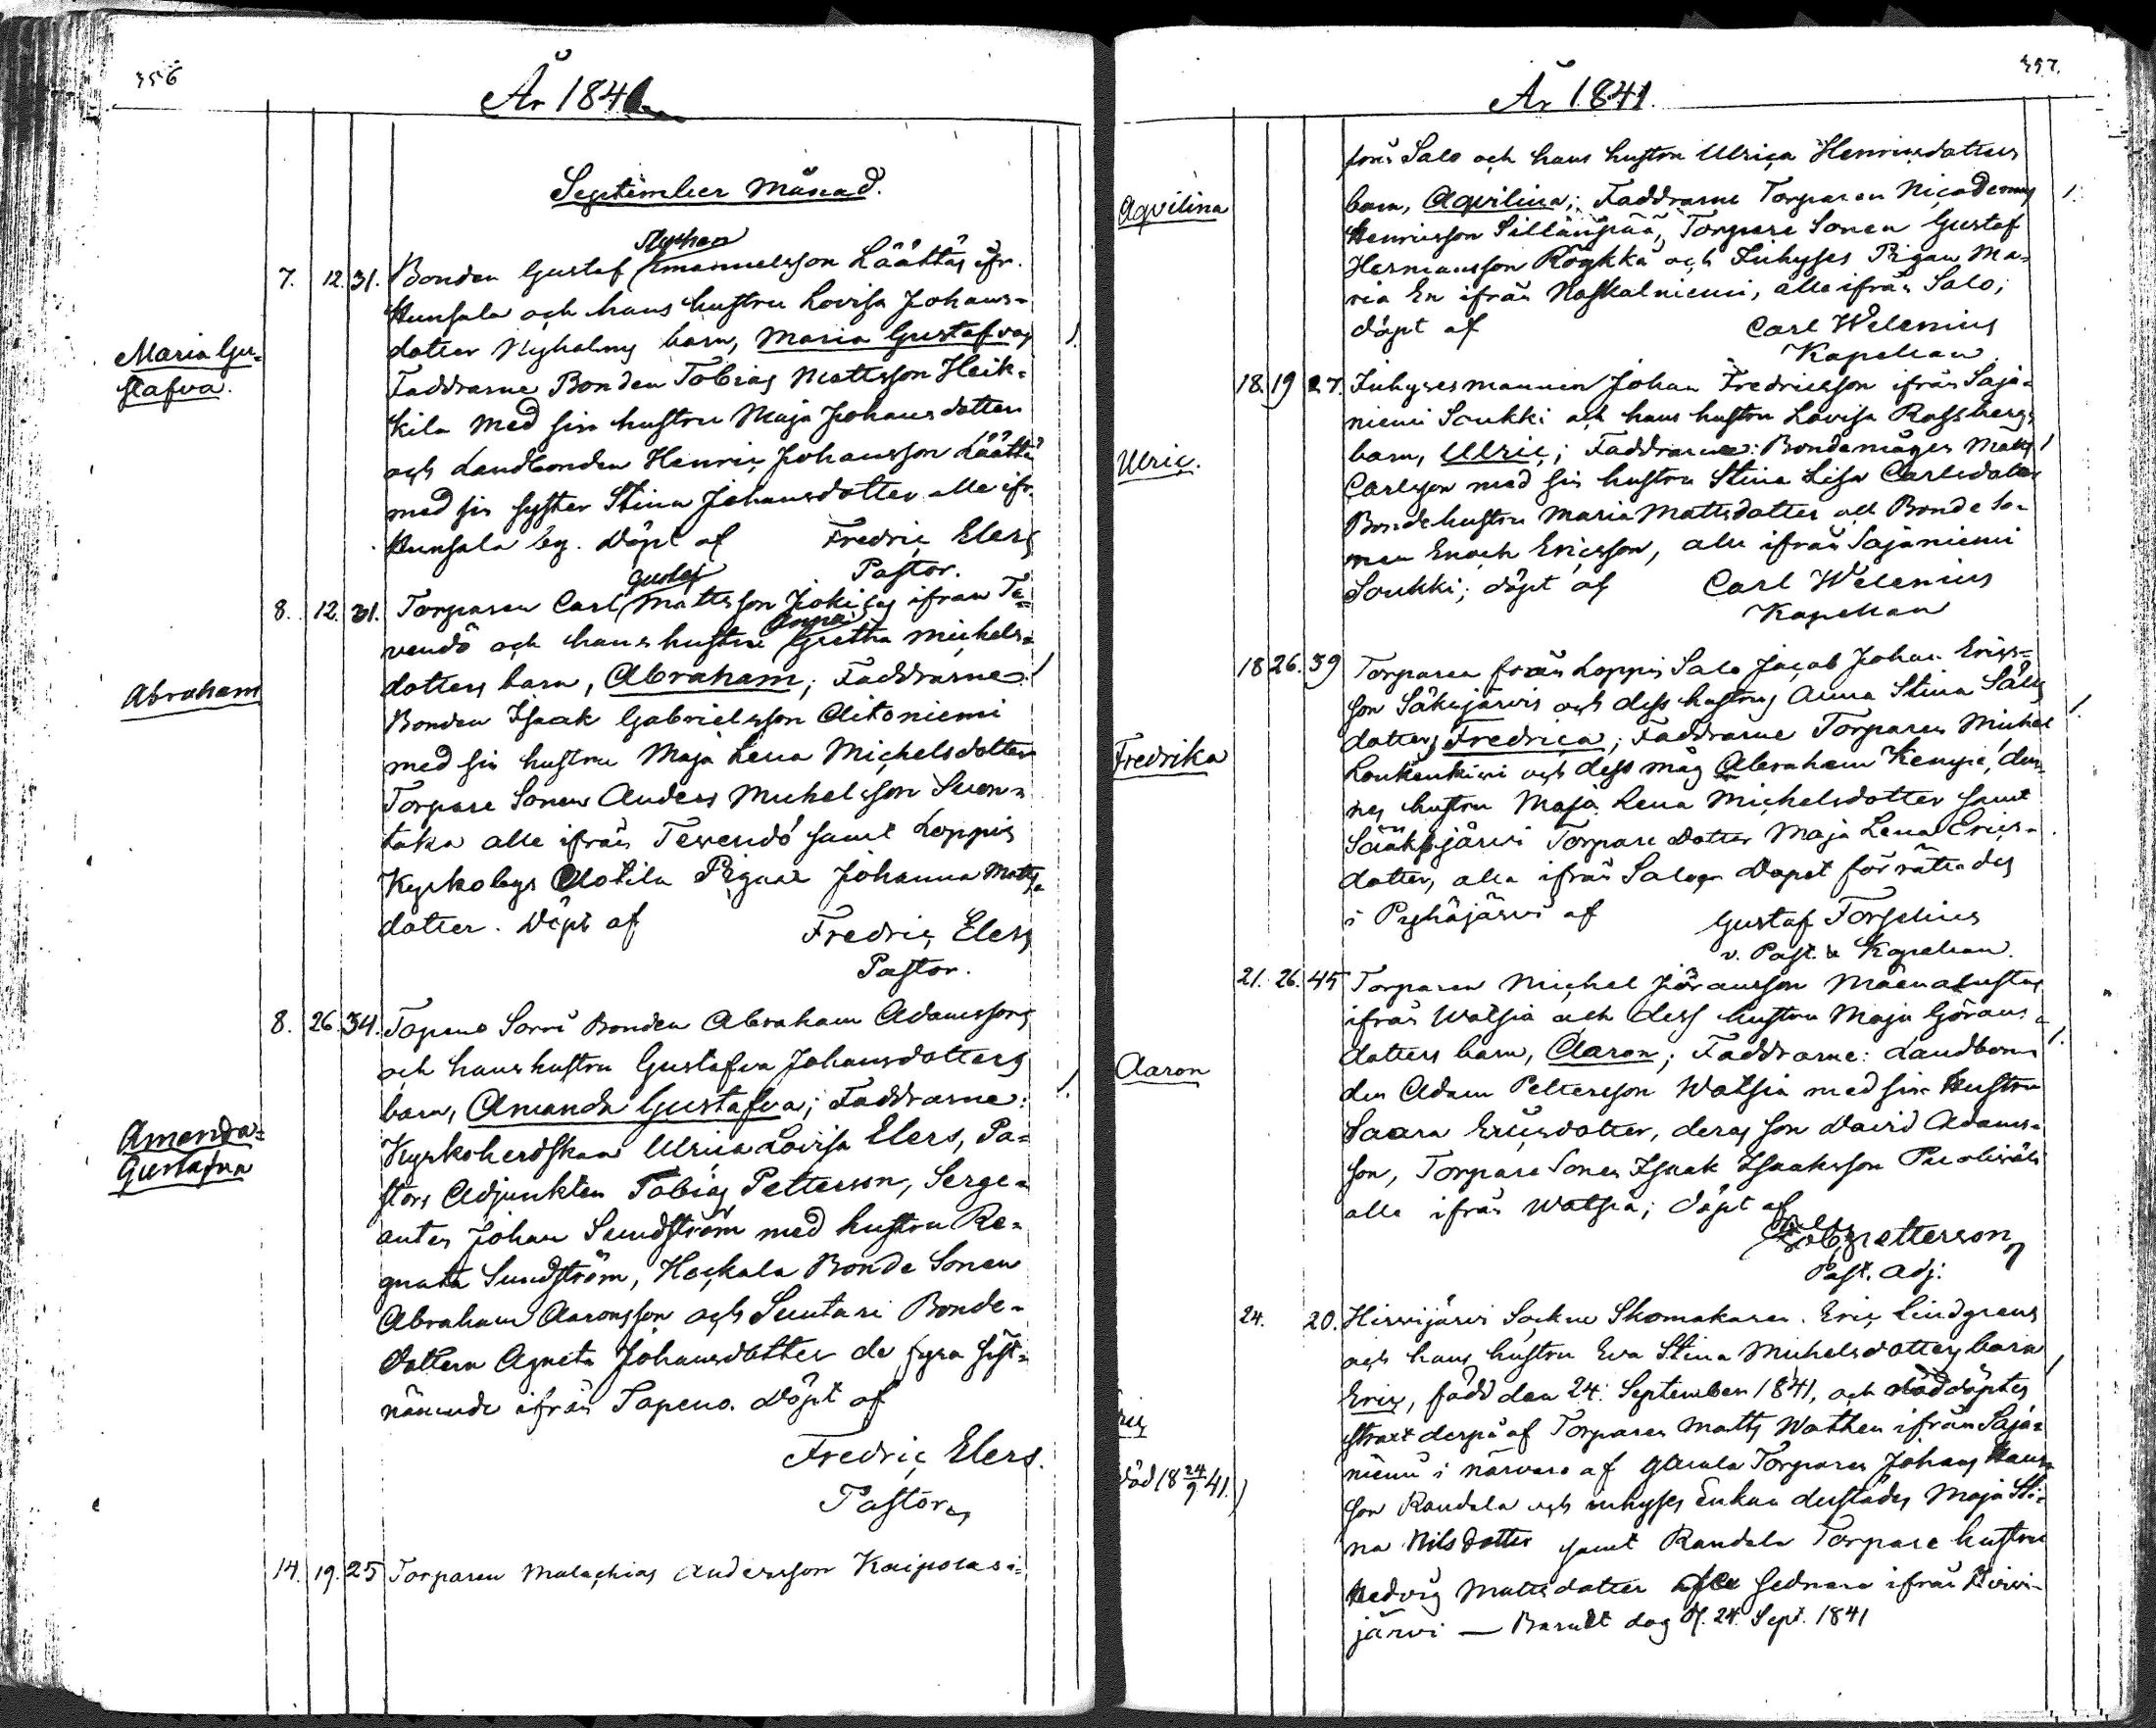 356
År 1841
September Månad.
Nyman
7. 12. 31. Bonden Gustaf Emanuelsson Läättäs ifr.
Hunsala och hans hustru Lovisa Johans-
dotter Nyholms barn, Maria Gustafvas
Maria Gu-
stafva.
Faddrarne Bonden Tobias Mattsson Heik-
kilä med sin hustru Maja Johansdotter
och Landbonden Henric Johansson Läättä
med sin syster Stina Johansdotter alla ifr.
Hunsala by. Döpt af Fredric Elers
Pastor.
Gustaf
8. 12. 31. Torparen Carl Mattsson Jokisas ifran Te-
Anna
vendö och hans hustru Gretha Michels-
dotters barn, Abraham; Faddrarne:
Abraham
Bonden Isaak Gabrielsson Aitoniemi
med sin hustru Maja Lena Michelsdotter
Torpare Sonen Anders Michelsson Suon-
taka alle ifrån Tevendö samt Loppis
Kyrkobys Ylötila Pigan Johanna Matts-
dotter. Döpt af Fredric Elers
Pastor.
8. 26. 34. Topeno Sorri Bonden Abraham Adamssons
och hans hustru Gustafva Johansdotters
barn, Amanda Gustafva; Faddrarne:
Amanda-
Gustafva
Kyrkoherdskan Ulrica Lovisa Elers, Pa-
stors Adjunkten Tobias Petterson, Serge-
anten Johan Sundström med hustru Re-
gnata Sundström, Hockala Bonde Sonen
Abraham Aaronsson och Suutari Bonde-
dottern Agneta Johansdotter de fyra sist-
nämnde ifrån Topeno. Döpt af
Fredric Elers.
Pastor
14. 19. 25 Torparen Malachias Andersson Kaipolas i-
357.
År 1841.
från Salo och hans hustru Ulrica Henricsdotters
barn, Aqvilina; Faddrarne Torparen Nicodemus
Aqvilina
Henricsson Sillänpää, Torpare Sonen Gustaf
Hermansson Röykkä och Inhyses Pigan Ma-
ria En ifrån Naskalniemi, alle ifrån Salo;
döpt af Carl Welenius
Kapellan
18. 19 27. Inhysesmannen Johan Fredricsson ifrån Saja-
niemi Soukki och hans hustru Lovisa Rossbergs
barn, Ulric; Faddrarne: Bondemågen Matts
Ulric.
Carlsson med sin hustru Stina Lisa Carlsdotter
Bondehustru Maria Mattsdotter och Bonde So-
nen Enoch Ericsson, alle ifrån Sajaniemi
Soukki; döpt af Carl Welenius
Kapellan
18 26. 39 Torparen från Loppis Salo Jacob Johan Erics-
son Säkjärvis och dess hustrus Anna Stina Sal
dotters Fredrica; Faddrarne Torparen Michel
Fredrika
Loukenkivi och dess måg Abraham Kempe, den-
nes hustru Maja Lena Michelsdotter samt
Sääksjärvi Torpare dotter Maja Lena Erics-
dotter, alla ifrån Salo Dopet förrättades
i Pyhäjärvi af Gustaf Forselius
v. Past. & Kapellan.
21. 26. 45 Torparen Michel Jöransson Mäenalustas
ifrån Watsia och dess hustru Maja Görans-
dotters barn, Aaron; Faddrarne: Landbon-
Aaron
den Adam Pettersson Watsia med sin Hustru
Saara Ericsdotter, deras son David Adams-
son, Torpare Sonen Isaak Isaaksson Puoliväli
alle ifrån Watsia; döpt af
Tob. Petterson
Past. Adj.
24. 20. Hirvijärvi Sockne Skomakaren Eric Lindgrens
och hans hustru Eva Stina Michelsdotters barn
Eric, född den 24. September 1841, och nöddöptes
strax derpå af Torparen Matts Wathen ifrån Saja-
niemi i närvaro af Torparen Johans Hans-
död 18 24/9 41.)
son Randala och inhyses Enkan dustädes Maja Sti-
na Nilsdotter samt Randala Torpare hustru
Hedvig Mattsdotter alle sednare ifrån Hirvi-
järvi — Barnet dog d. 24. Sept. 1841